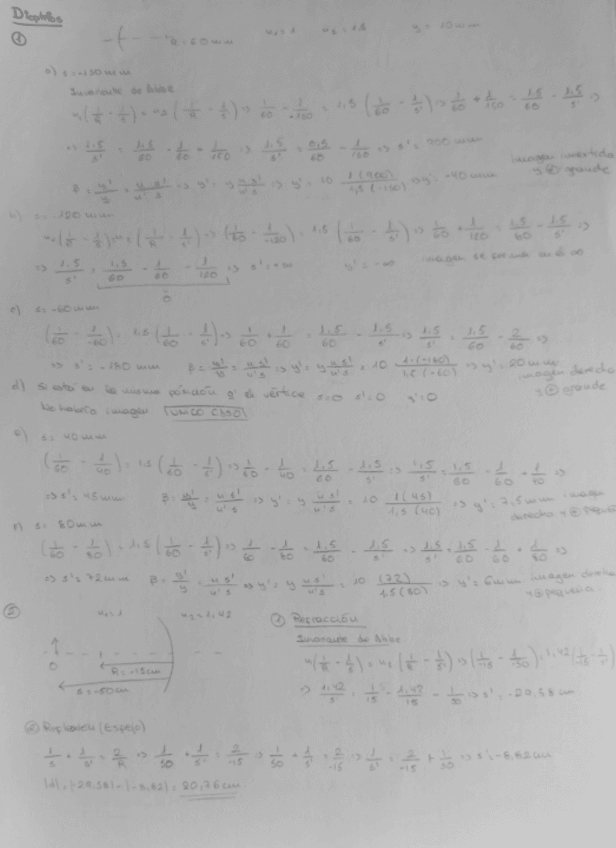 Dioptrios
①
R=60mm n₁=1 n₂=1.5 y=10mm
a) s=-150mm
Invariante de Abbe
n₁(1/R - 1/s) = n₂(1/R - 1/s') ⇒ 1/60 - 1/-150 = 1,5(1/60 - 1/s') ⇒ 1/60 + 1/150 = 1,5/60 - 1,5/s' ⇒
⇒ 1,5/s' = 1,5/60 - 1/60 - 1/150 ⇒ 1,5/s' = 0,5/60 - 1/150 ⇒ s' = 900mm
β = y'/y = n s'/n' s ⇒ y' = y n s'/n' s ⇒ y' = 10 1(900)/1,5(-150) ⇒ y' = -40mm imagen invertida y ⊕ grande
b) s=-120mm
n(1/R - 1/s) = n'(1/R - 1/s') ⇒ (1/60 - 1/-120) = 1,5(1/60 - 1/s') ⇒ 1/60 + 1/120 = 1,5/60 - 1,5/s' ⇒
⇒ 1,5/s' = 1,5/60 - 1/60 - 1/120 ⇒ s' = +∞ y' = -∞ imagen se forma en el ∞
0
c) s=-60mm
(1/60 - 1/-60) = 1,5(1/60 - 1/s') ⇒ 1/60 + 1/60 = 1,5/60 - 1,5/s' ⇒ 1,5/s' = 1,5/60 - 2/60 ⇒
⇒ s' = -180mm β = y'/y = n s'/n' s ⇒ y' = y n s'/n' s = 10 1·(-180)/1,5(-60) ⇒ y' = 20mm imagen derecha y ⊕ grande
d) Si está en la misma posición q' el vértice s=0 s'=0 y'=0
No habría imagen UNICO CASO
e) s=40mm
(1/60 - 1/40) = 1,5(1/60 - 1/s') ⇒ 1/60 - 1/40 = 1,5/60 - 1,5/s' ⇒ 1,5/s' = 1,5/60 - 1/60 + 1/40 ⇒
⇒ s' = 45mm β = y'/y = n s'/n' s ⇒ y' = y n s'/n' s = 10 1(45)/1,5(40) ⇒ y' = 7,5mm imagen derecha y ⊕ pequeña
f) s=80mm
(1/60 - 1/80) = 1,5(1/60 - 1/s') ⇒ 1/60 - 1/80 = 1,5/60 - 1,5/s' ⇒ 1,5/s' = 1,5/60 - 1/60 + 1/80 ⇒
⇒ s' = 72mm β = y'/y = n s'/n' s ⇒ y' = y n s'/n' s = 10 (72)/1,5(80) ⇒ y' = 6mm imagen derecha y ⊕ pequeña
⑤ n₁=1 n₂=1,42
O R=-15cm
s=-50cm
① Refracción
Invariante de Abbe
n(1/R - 1/s) = n₂(1/R - 1/s') ⇒ (1/-15 - 1/-50) = 1,42(1/-15 - 1/s')
⇒ 1,42/s' = 1/15 - 1,42/15 - 1/50 ⇒ s' = -29,58cm
② Reflexión (Espejo)
1/s + 1/s' = 2/R ⇒ 1/-50 + 1/s' = 2/-15 ⇒ 1/-50 + 1/s' = 2/-15 ⇒ 1/s' = 2/-15 + 1/50 ⇒ s' = -8,82cm
|d| = |-29,58| - |-8,82| = 20,76cm